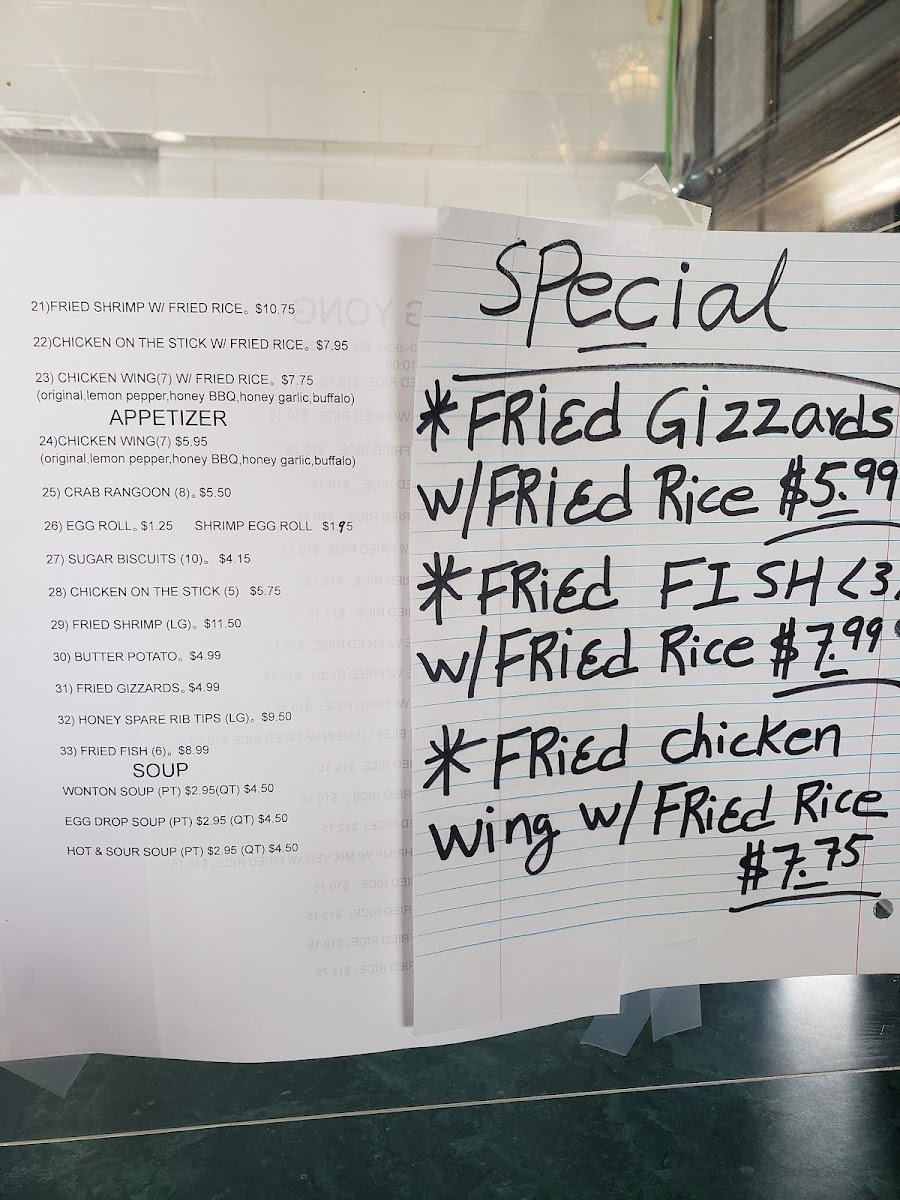 21)FRIED SHRIMP W/ FRIED RICE。$10.75
22)CHICKEN ON THE STICK W/ FRIED RICE。$7.95
23) CHICKEN WING(7) W/ FRIED RICE。$7.75
(original,lemon pepper,honey BBQ,honey garlic,buffalo)
APPETIZER
24)CHICKEN WING(7) $5.95
(original,lemon pepper,honey BBQ,honey garlic,buffalo)
25) CRAB RANGOON (8)。$5.50
26) EGG ROLL。$1.25 SHRIMP EGG ROLL $195
27) SUGAR BISCUITS (10)。 $4.15
28) CHICKEN ON THE STICK (5) $5.75
29) FRIED SHRIMP (LG)。$11.50
30) BUTTER POTATO。$4.99
31) FRIED GIZZARDS。$4.99
32) HONEY SPARE RIB TIPS (LG)。$9.50
33) FRIED FISH (6)。$8.99
SOUP
WONTON SOUP (PT) $2.95(QT) $4.50
EGG DROP SOUP (PT) $2.95 (QT) $4.50
HOT & SOUR SOUP (PT) $2.95 (QT) $4.50
SPecial
*FRiEd GiZZards
W/FRiEd Rice $5.99
*FRiEd FISH (3
W/FRiEd Rice $7.99
*FRiEd chicken
wing w/ FRiEd Rice
$7.75